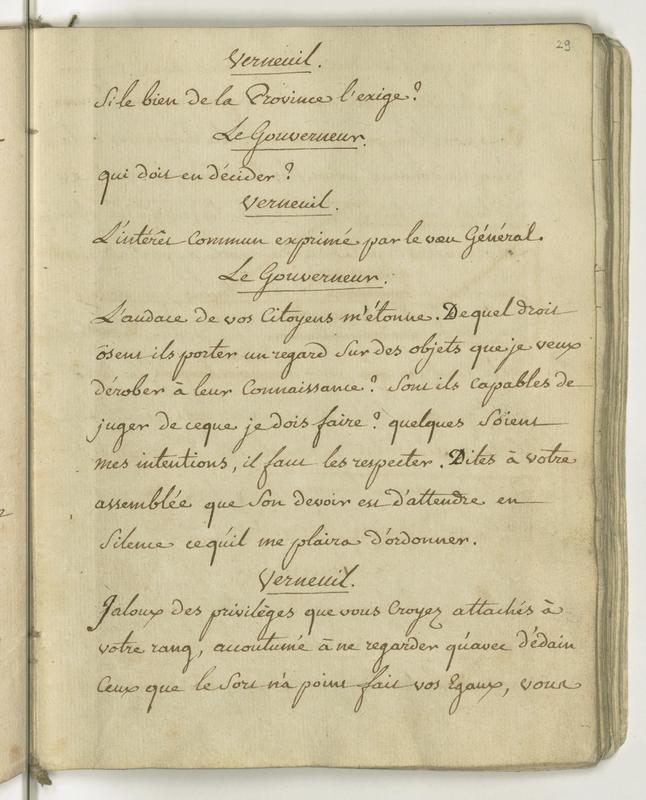 29
Verneuil.
Si le bien de la Province l'exige ?
Le Gouverneur.
qui doit en décider ?
Verneuil.
L'intérêt Commun exprimé par le vœu Général.
Le Gouverneur.
L'audace de vos Citoyens m'étonne. De quel droit
osent ils porter un regard Sur des objets que je veux
dérober à leur Connaissance ? Sont ils Capables de
juger de ceque je dois faire ? quelques Soïent
mes intentions, il faut les respecter. Dites à votre
assemblée que Son devoir est d'attendre en
Silence cequ'il me plaira d'ordonner.
Verneuil.
Jaloux des privilèges que vous Croyez attachés à
votre rang, accoutumé à ne regarder qu'avec dédain
Ceux que le Sort n'a point fait vos Egaux, vous